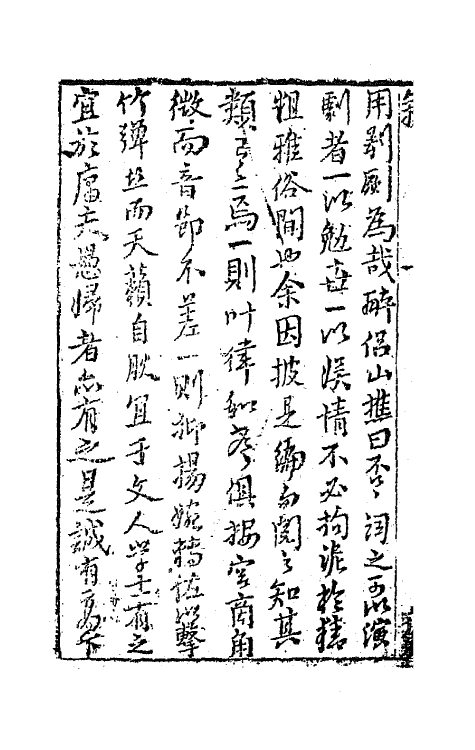 用剞劂為哉醉侶山樵曰否詞之可以演
劇者一以勉世一以娛情不必拘泥於精
粗雅俗間也余因披是編而閱之知其
類有三焉一則叶律和聲俱按宮商角
徵而音節不差一則抑揚婉轉佐以擊
竹彈絲而天籟自脫宜于文人學士有之
宜於庸夫愚婦者亦有之是誠有高下